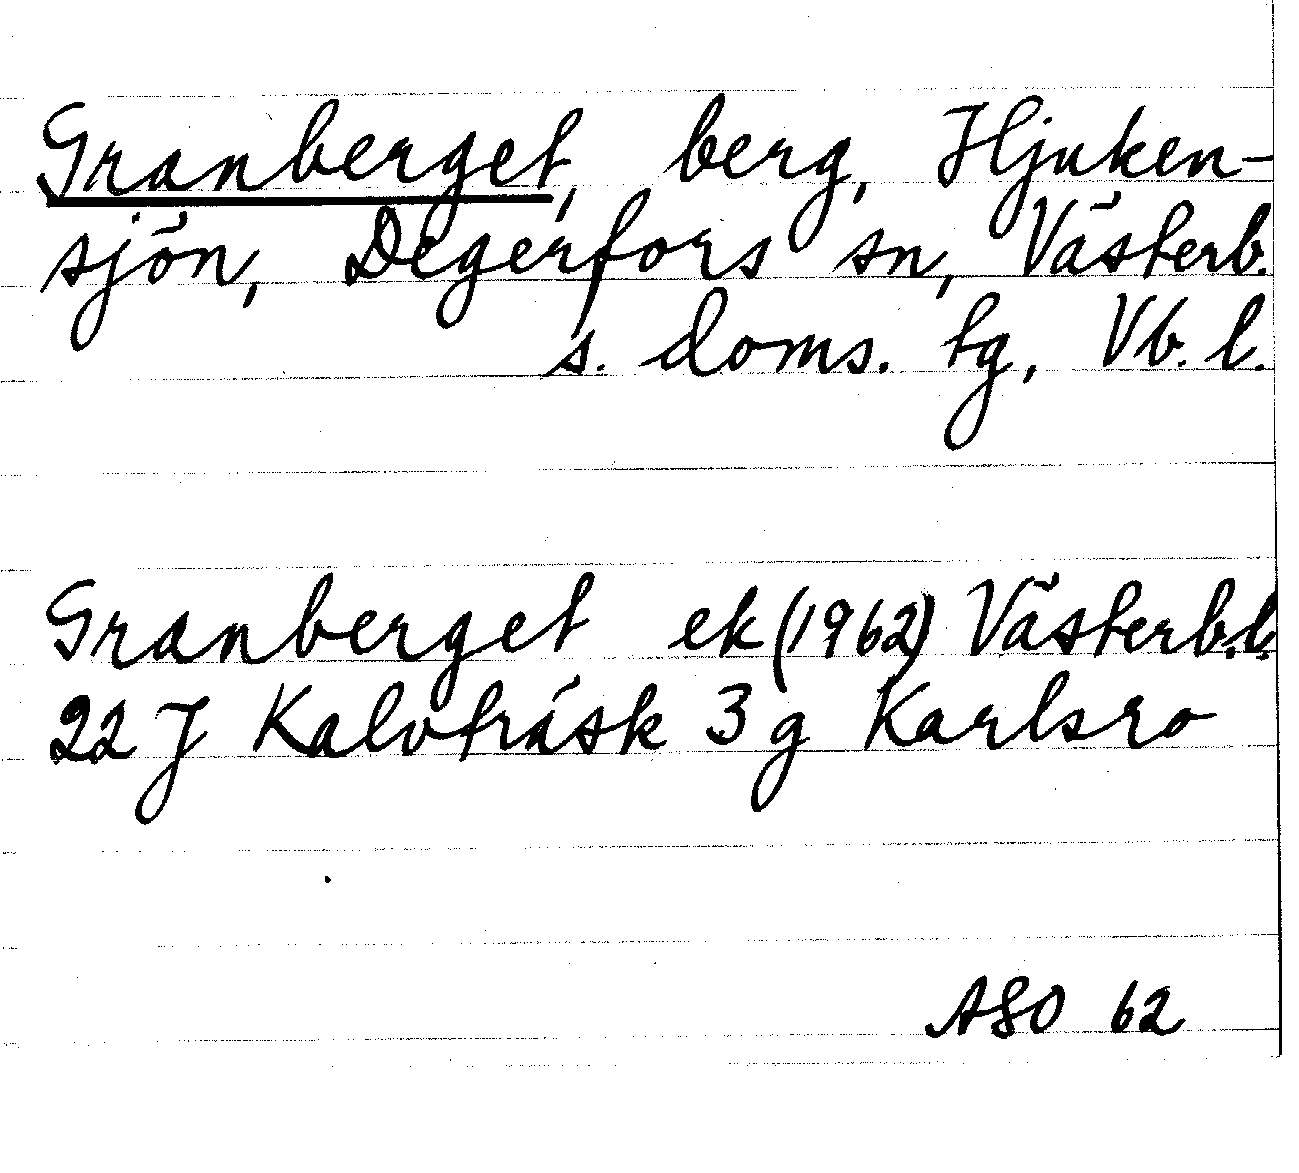 Granberget, berg, Hjuken-
sjön, Degerfors sn, Västerb.
s. doms. tg, Vb. l.
Granberget ek (1962) Västerb.l.
22 J Kalvträsk 3 g Karlsro
ASO 62